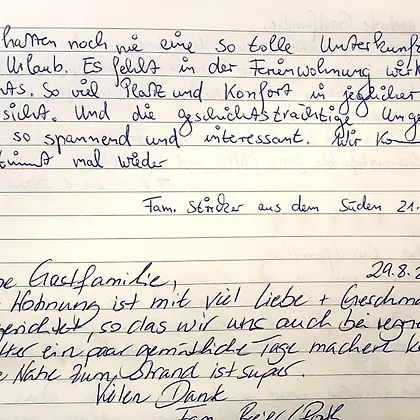 hatten noch nie eine so tolle Unterkunf
Urlaub. Es fehlt in der Ferienwohnung wirk
ts. So viel Platz und Komfort in jeglicher
sicht. Und die geschichtsträchtige Umge
so spannend und interessant. Wir ko
timmt mal wieder
Fam. aus dem Süden 21.
be Gastfamilie, 29.8.2
Wohnung ist mit viel Liebe + Geschma
gerichtet, so das wir uns auch bei regne
tter ein paar gemütliche Tage machen k
e Nähe zum Strand ist super.
Vielen Dank
Fam.